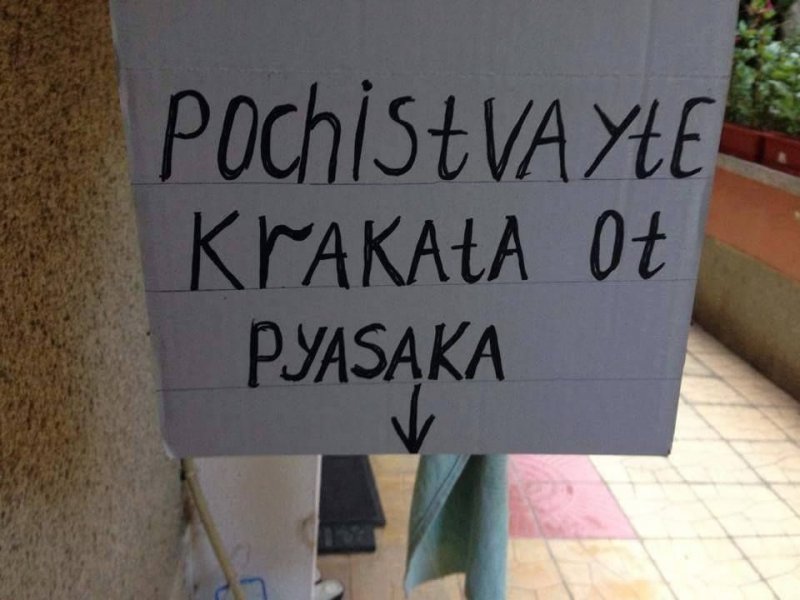 POChiStVAYtE
KrAKAtA Ot
PYASAKA